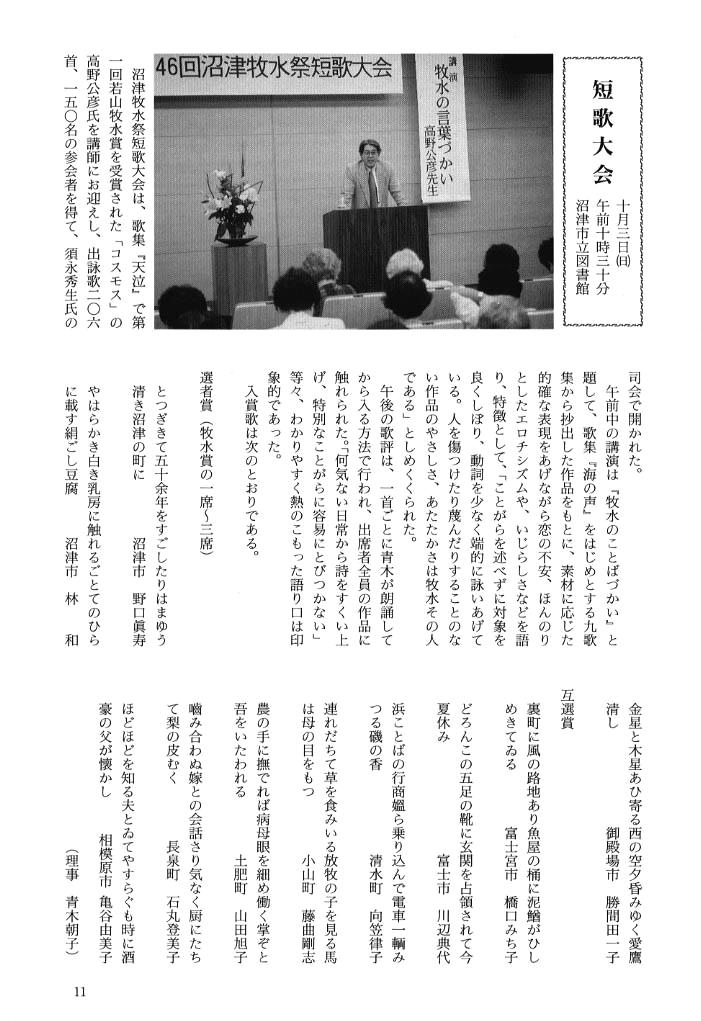 短歌大会
十月三日㈰
午前十時三十分
沼津市立図書館
46回沼津牧水祭短歌大会
講演
牧水の言葉づかい
高野公彦先生
沼津牧水祭短歌大会は、歌集『天泣』で第
一回若山牧水賞を受賞された「コスモス」の
高野公彦氏を講師にお迎えし、出詠歌二〇六
首、一五〇名の参会者を得て、須永秀生氏の
司会で開かれた。
午前中の講演は『牧水のことばづかい』と
題して、歌集『海の声』をはじめとする九歌
集から抄出した作品をもとに、素材に応じた
的確な表現をあげながら恋の不安、ほんのり
としたエロチシズムや、いじらしさなどを語
り、特徴として、「ことがらを述べずに対象を
良くしぼり、動詞を少なく端的に詠いあげて
いる。人を傷つけたり蔑んだりすることのな
い作品のやさしさ、あたたかさは牧水その人
である」としめくくられた。
午後の歌評は、一首ごとに青木が朗誦して
から入る方法で行われ、出席者全員の作品に
触れられた。「何気ない日常から詩をすくい上
げ、特別なことがらに容易にとびつかない」
等々、わかりやすく熱のこもった語り口は印
象的であった。
入賞歌は次のとおりである。
選者賞（牧水賞の一席～三席）
とつぎきて五十余年をすごしたりはまゆう
清き沼津の町に 沼津市 野口眞寿
やはらかき白き乳房に触れるごとてのひら
に載す絹ごし豆腐 沼津市 林 和
金星と木星あひ寄る西の空夕昏みゆく愛鷹
清し 御殿場市 勝間田一子
互選賞
裏町に風の路地あり魚屋の桶に泥鰌がひし
めきてゐる 富士宮市 橋口みち子
どろんこの五足の靴に玄関を占領されて今
夏休み 富士市 川辺典代
浜ことばの行商媼ら乗り込んで電車一輌み
つる磯の香 清水町 向笠律子
連れだちて草を食みいる放牧の子を見る馬
は母の目をもつ 小山町 藤曲剛志
農の手に撫でれば病母眼を細め働く掌ぞと
吾をいたわれる 土肥町 山田旭子
嚙み合わぬ嫁との会話さり気なく厨にたち
て梨の皮むく 長泉町 石丸登美子
ほどほどを知る夫とゐてやすらぐも時に酒
豪の父が懐かし 相模原市 亀谷由美子
（理事 青木朝子）
11